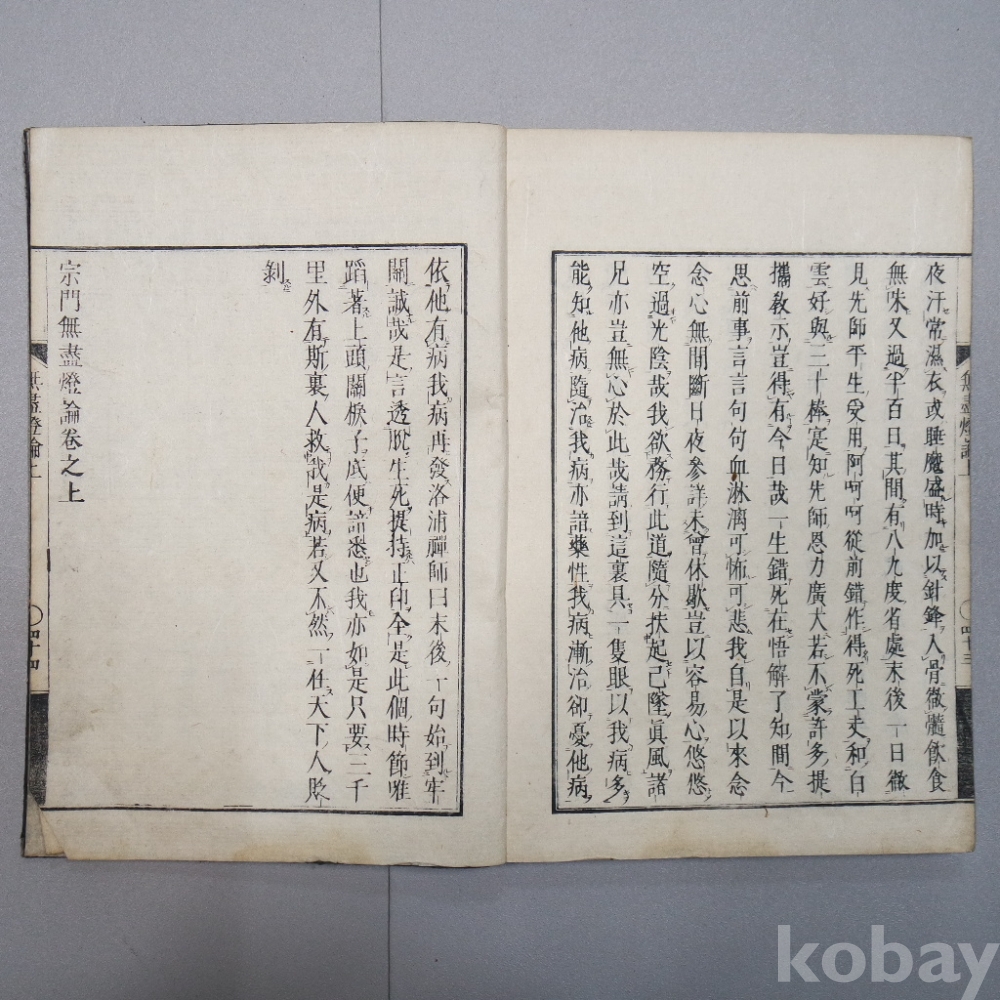 夜汗常濕衣或睡魔盛時加以針鋒入骨徹髓飲食
無味又過半百日其間有八九度省處末後一日徹
見先師平生受用阿呵呵從前錯作得死工夫和白
雲好與三十棒寔知先師恩力廣大若不蒙許多提
攜教示豈得有今日哉一生錯死在悟解了知間今
思前事言言句句血淋漓可怖可悲我自是以來念
念心無間斷日夜參詳未曾休歇豈以容易心悠悠
空過光陰哉我欲務行此道隨分扶起已墜真風諸
兄亦豈無心於此哉請到這裏具一隻眼以我病多
能知他病隨治我病亦諳藥性我病漸治卻憂他病
無盡燈論上
四十三
依他有病我病再發洛浦禪師曰末後一句始到牢
關誠哉是言透脫生死提持正印全是此個時節唯
蹈著上頭關棙子底便諳悉也我亦如是只要三千
里外有斯裏人救我是病若又不然一任天下人貶
剝
宗門無盡燈論卷之上
無盡燈論上
四十四
kobay